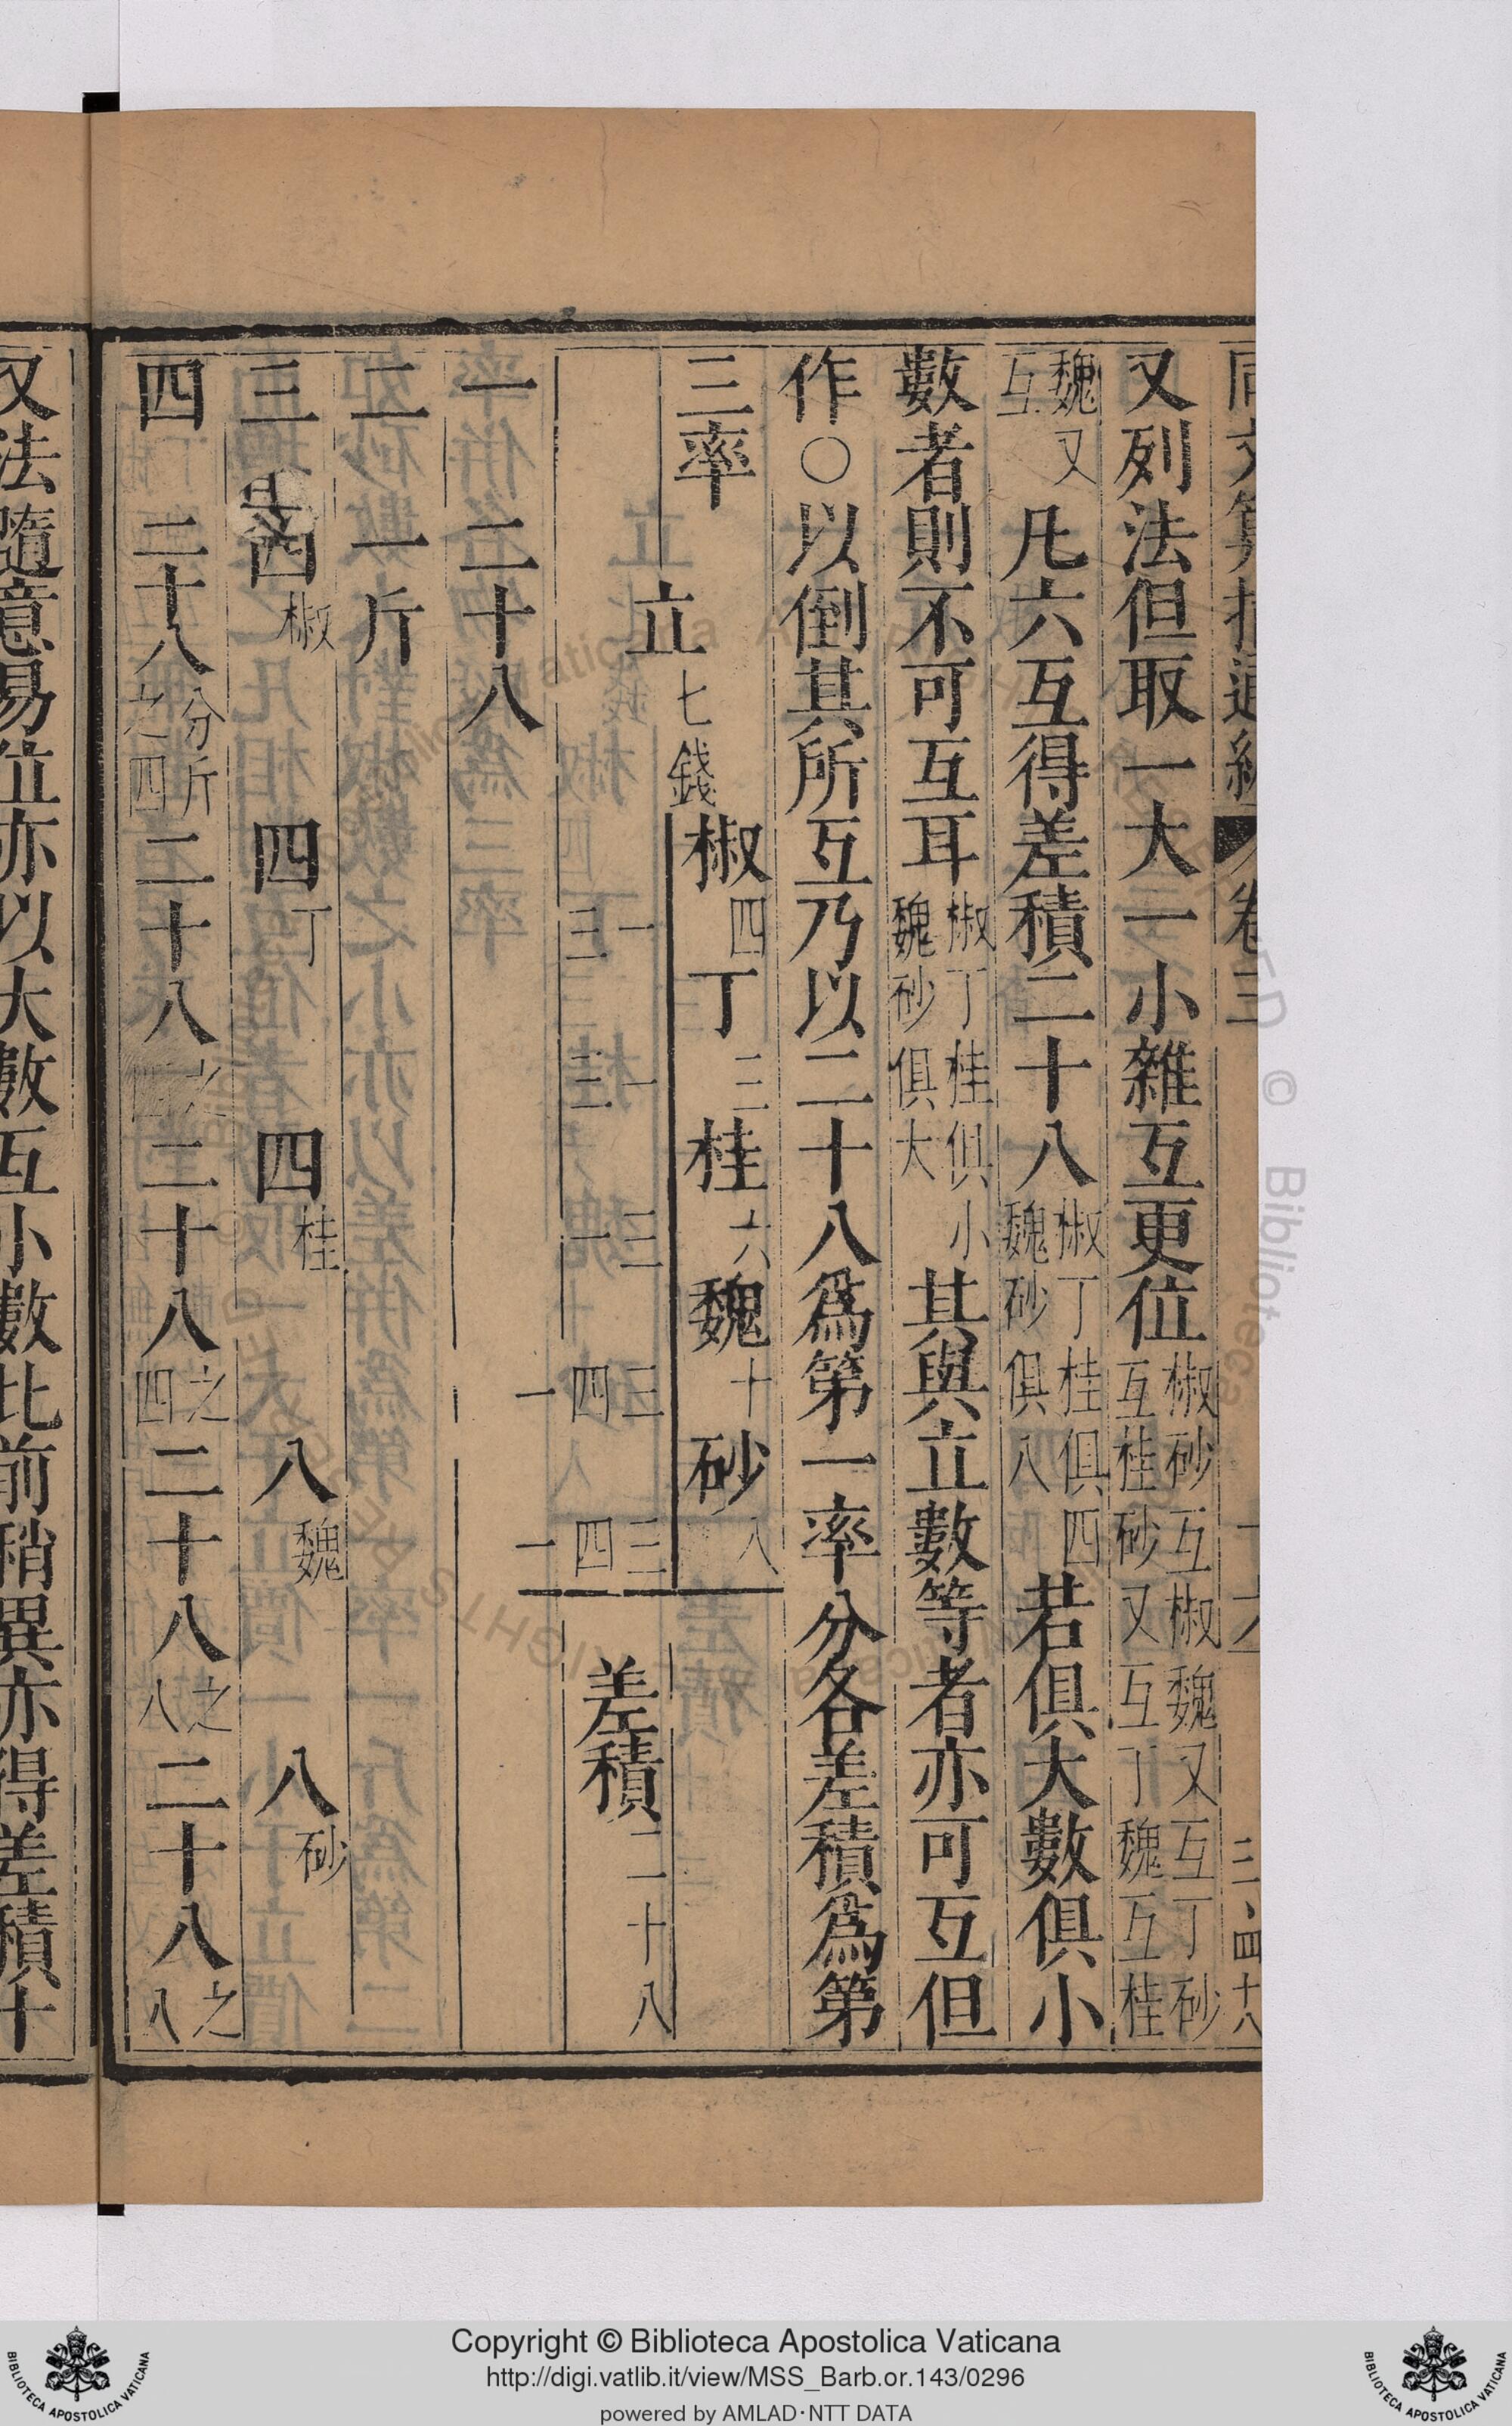 又列法但取一大一小雜互更位椒砂互椒魏又互丁砂互桂砂又互丁魏互桂
魏又互凡六互得差積二十八椒丁桂俱四魏砂俱八若俱大數俱小
數者則不可互耳椒丁桂俱小魏砂俱大其與立數等者亦可互但
作○以倒其所互乃以二十八爲第一率分各差積爲第
三率
立七錢
椒四 丁三 桂六 魏十 砂八
一 一 三 三 三
三 三 一 四 四
一 一
差積二十八
一 二十八
二 一斤
三 四椒 四丁 四桂 八魏 八砂
四 二十八分斤之四 二十八之四 二十八之四 二十八之八 二十八之八
又法隨意易位亦以大數互小數比前稍異亦得差積十
Copyright © Biblioteca Apostolica Vaticana
http://digi.vatlib.it/view/MSS_Barb.or.143/0296
powered by AMLAD·NTT DATA
BIBLIOTECA APOSTOLICA VATICANA
BIBLIOTECA APOSTOLICA VATICANA